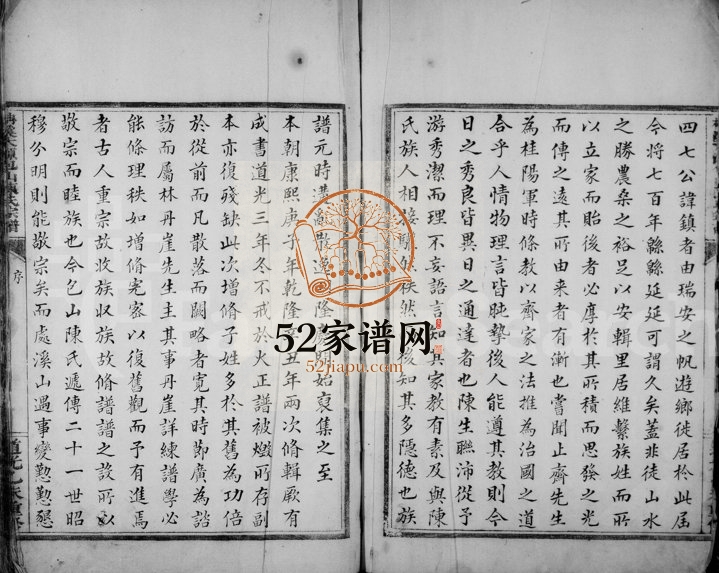 四七公諱鎮者由瑞安之帆遊鄉徙居於此屆
今將七百年緜緜延延可謂久矣蓋非徒山水
之勝農桑之裕足以安輯里居維繫族姓而所
以立家而貽後者必厚於其所積而思發之光
而傳之遠其所由来者有漸也嘗聞止齋先生
為桂陽軍時條教以齊家之法推為治國之道
合乎人情物理言皆摯後人能遵其教則今
日之秀良皆異日之通達者也陳生聯沛從予
游秀潔而理不妄語言知其家教有素及與陳
氏族人相接然秩然後知其多隱德也族
譜元時遭亂散逸隆明始裒集之至
本朝康熙庚子年乾隆丑年兩次脩輯厥有
成書道光三年冬不戒於火正譜被燬所存副
本亦復殘缺此次增脩子姓多於其舊為功倍
於從前而凡散落而闕略者寬其時節廣為諮
訪而屬林丹崖先生主其事丹崖詳練譜學必
能條理秩如增脩完密以復舊觀而予有進焉
者古人重宗故收族収族故脩譜譜之設所以
敬宗而睦族也今山陳氏遞傳二十一世昭
穆分明則能敬宗矣而處溪山遇事變懃懃懇
序
52家谱网
52jiapu.com